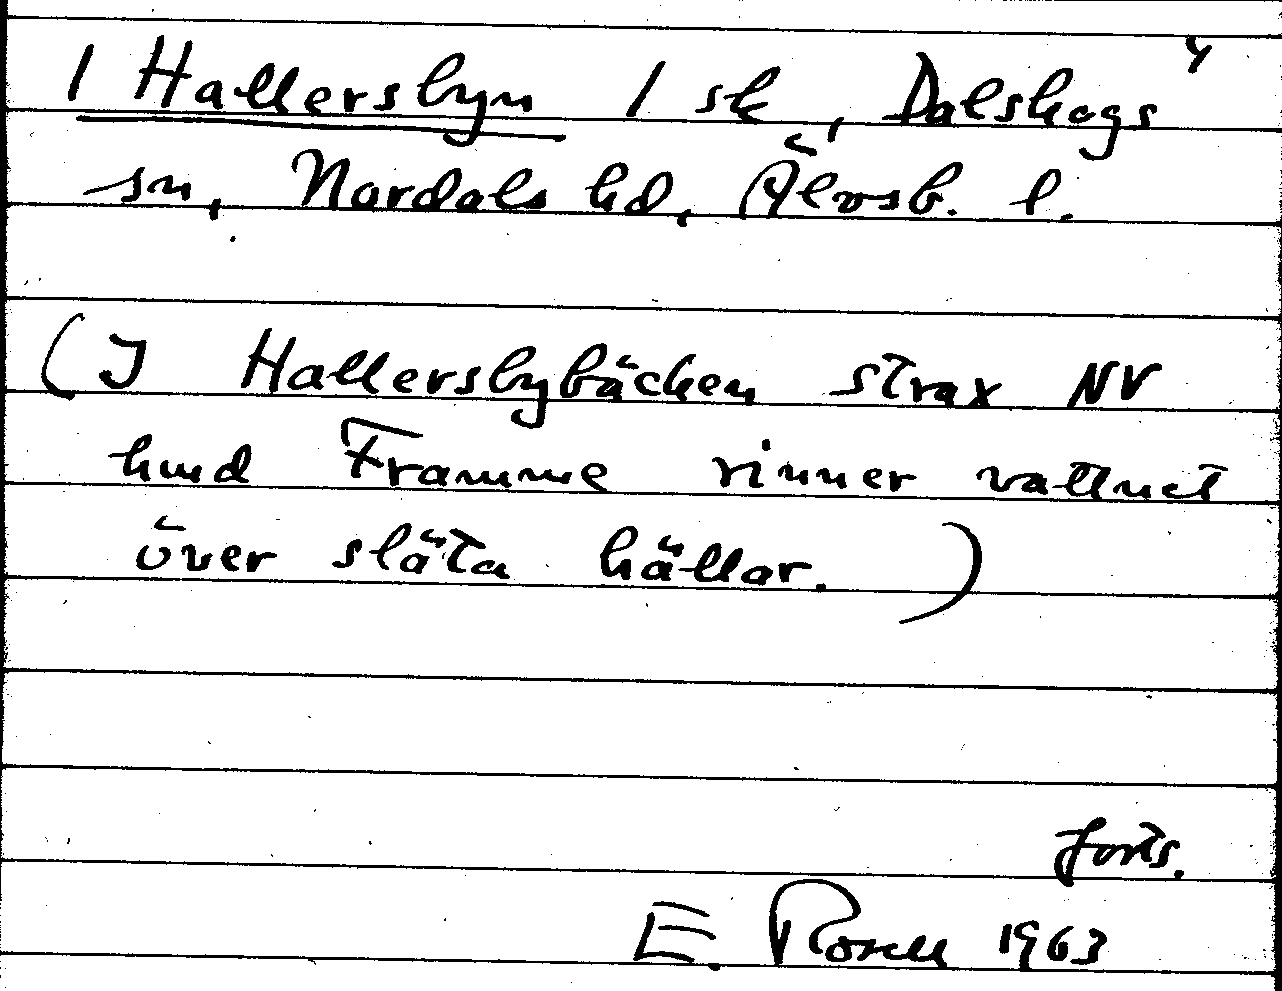 4
/ Hallersbyn / sk, Dalskogs
sn, Nordals hd, Älvsb. l.
(I Hallersbybäcken strax NV
hmd Framme rinner vattnet
över släta hällar.)
forts.
E. Rosell 1963